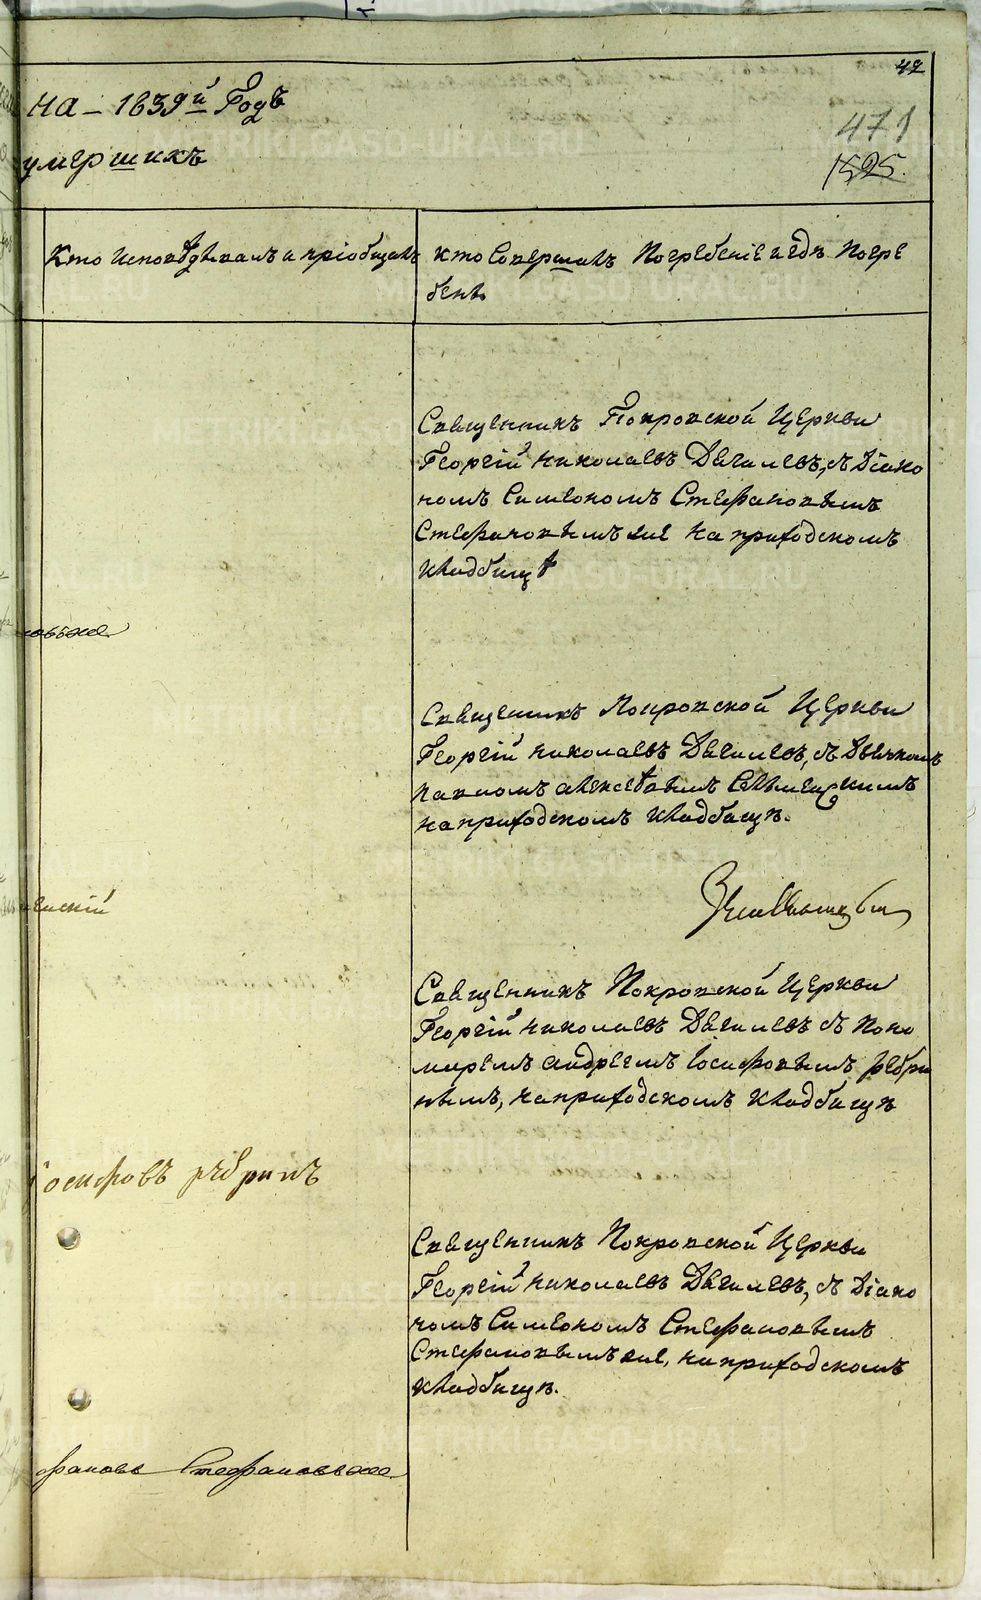 42
на – 1839й Годъ
471
умершихъ
1525.
Кто Исповѣдывалъ и пріобщалъ
кто Совершалъ Погребеніе и гдѣ Погре
бенъ
Священникъ Покровской Церкви
Георгій Николаевъ Дягилевъ, съ Діако
номъ Симеономъ Стефановымъ
Стефановымъ же на приходскомъ
кладбищѣ
Священникъ Покровской Церкви
Георгій Николаевъ Дягилевъ, съ Дьячкомъ
Павломъ Алексѣевымъ
на приходскомъ кладбищѣ.
енскій
Священникъ Покровской Церкви
Георгій Николаевъ Дягилевъ съ Поно
маремъ Андреемъ Іосифовымъ Рѣбри
нымъ, на приходскомъ кладбищѣ
Іосифовъ Рѣбринъ
Священникъ Покровской Церкви
Георгій Николаевъ Дягилевъ, съ Діако
номъ Симеономъ Стефановымъ
Стефановымъ же, на приходскомъ
кладбищѣ.
фановъ Стефановъ же